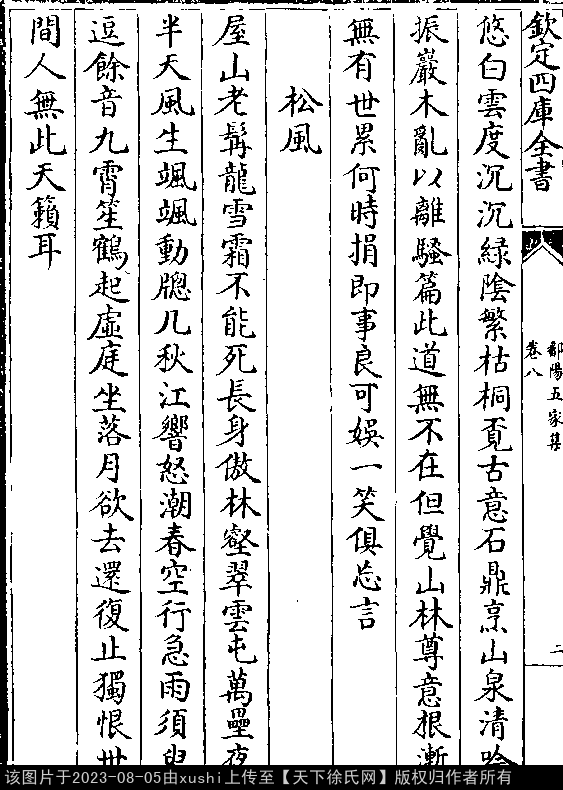 欽定四庫全書
鄱陽五家集
卷八
二
悠白雲度沉沉緑陰繁枯桐覔古意石鼎烹山泉清吟
振巖木亂以離騷篇此道無不在但覺山林尊意根漸
無有世累何時捐即事良可娛一笑俱忘言
松風
屋山老髯龍雪霜不能死長身傲林壑翠雲屯萬壘夜
半天風生颯颯動牕几秋江響怒潮春空行急雨須臾
逗餘音九霄笙鶴起虚庭坐落月欲去還復止獨恨世
間人無此天籟耳
该图片于2023-08-05由xushi上传至【天下徐氏网】版权归作者所有